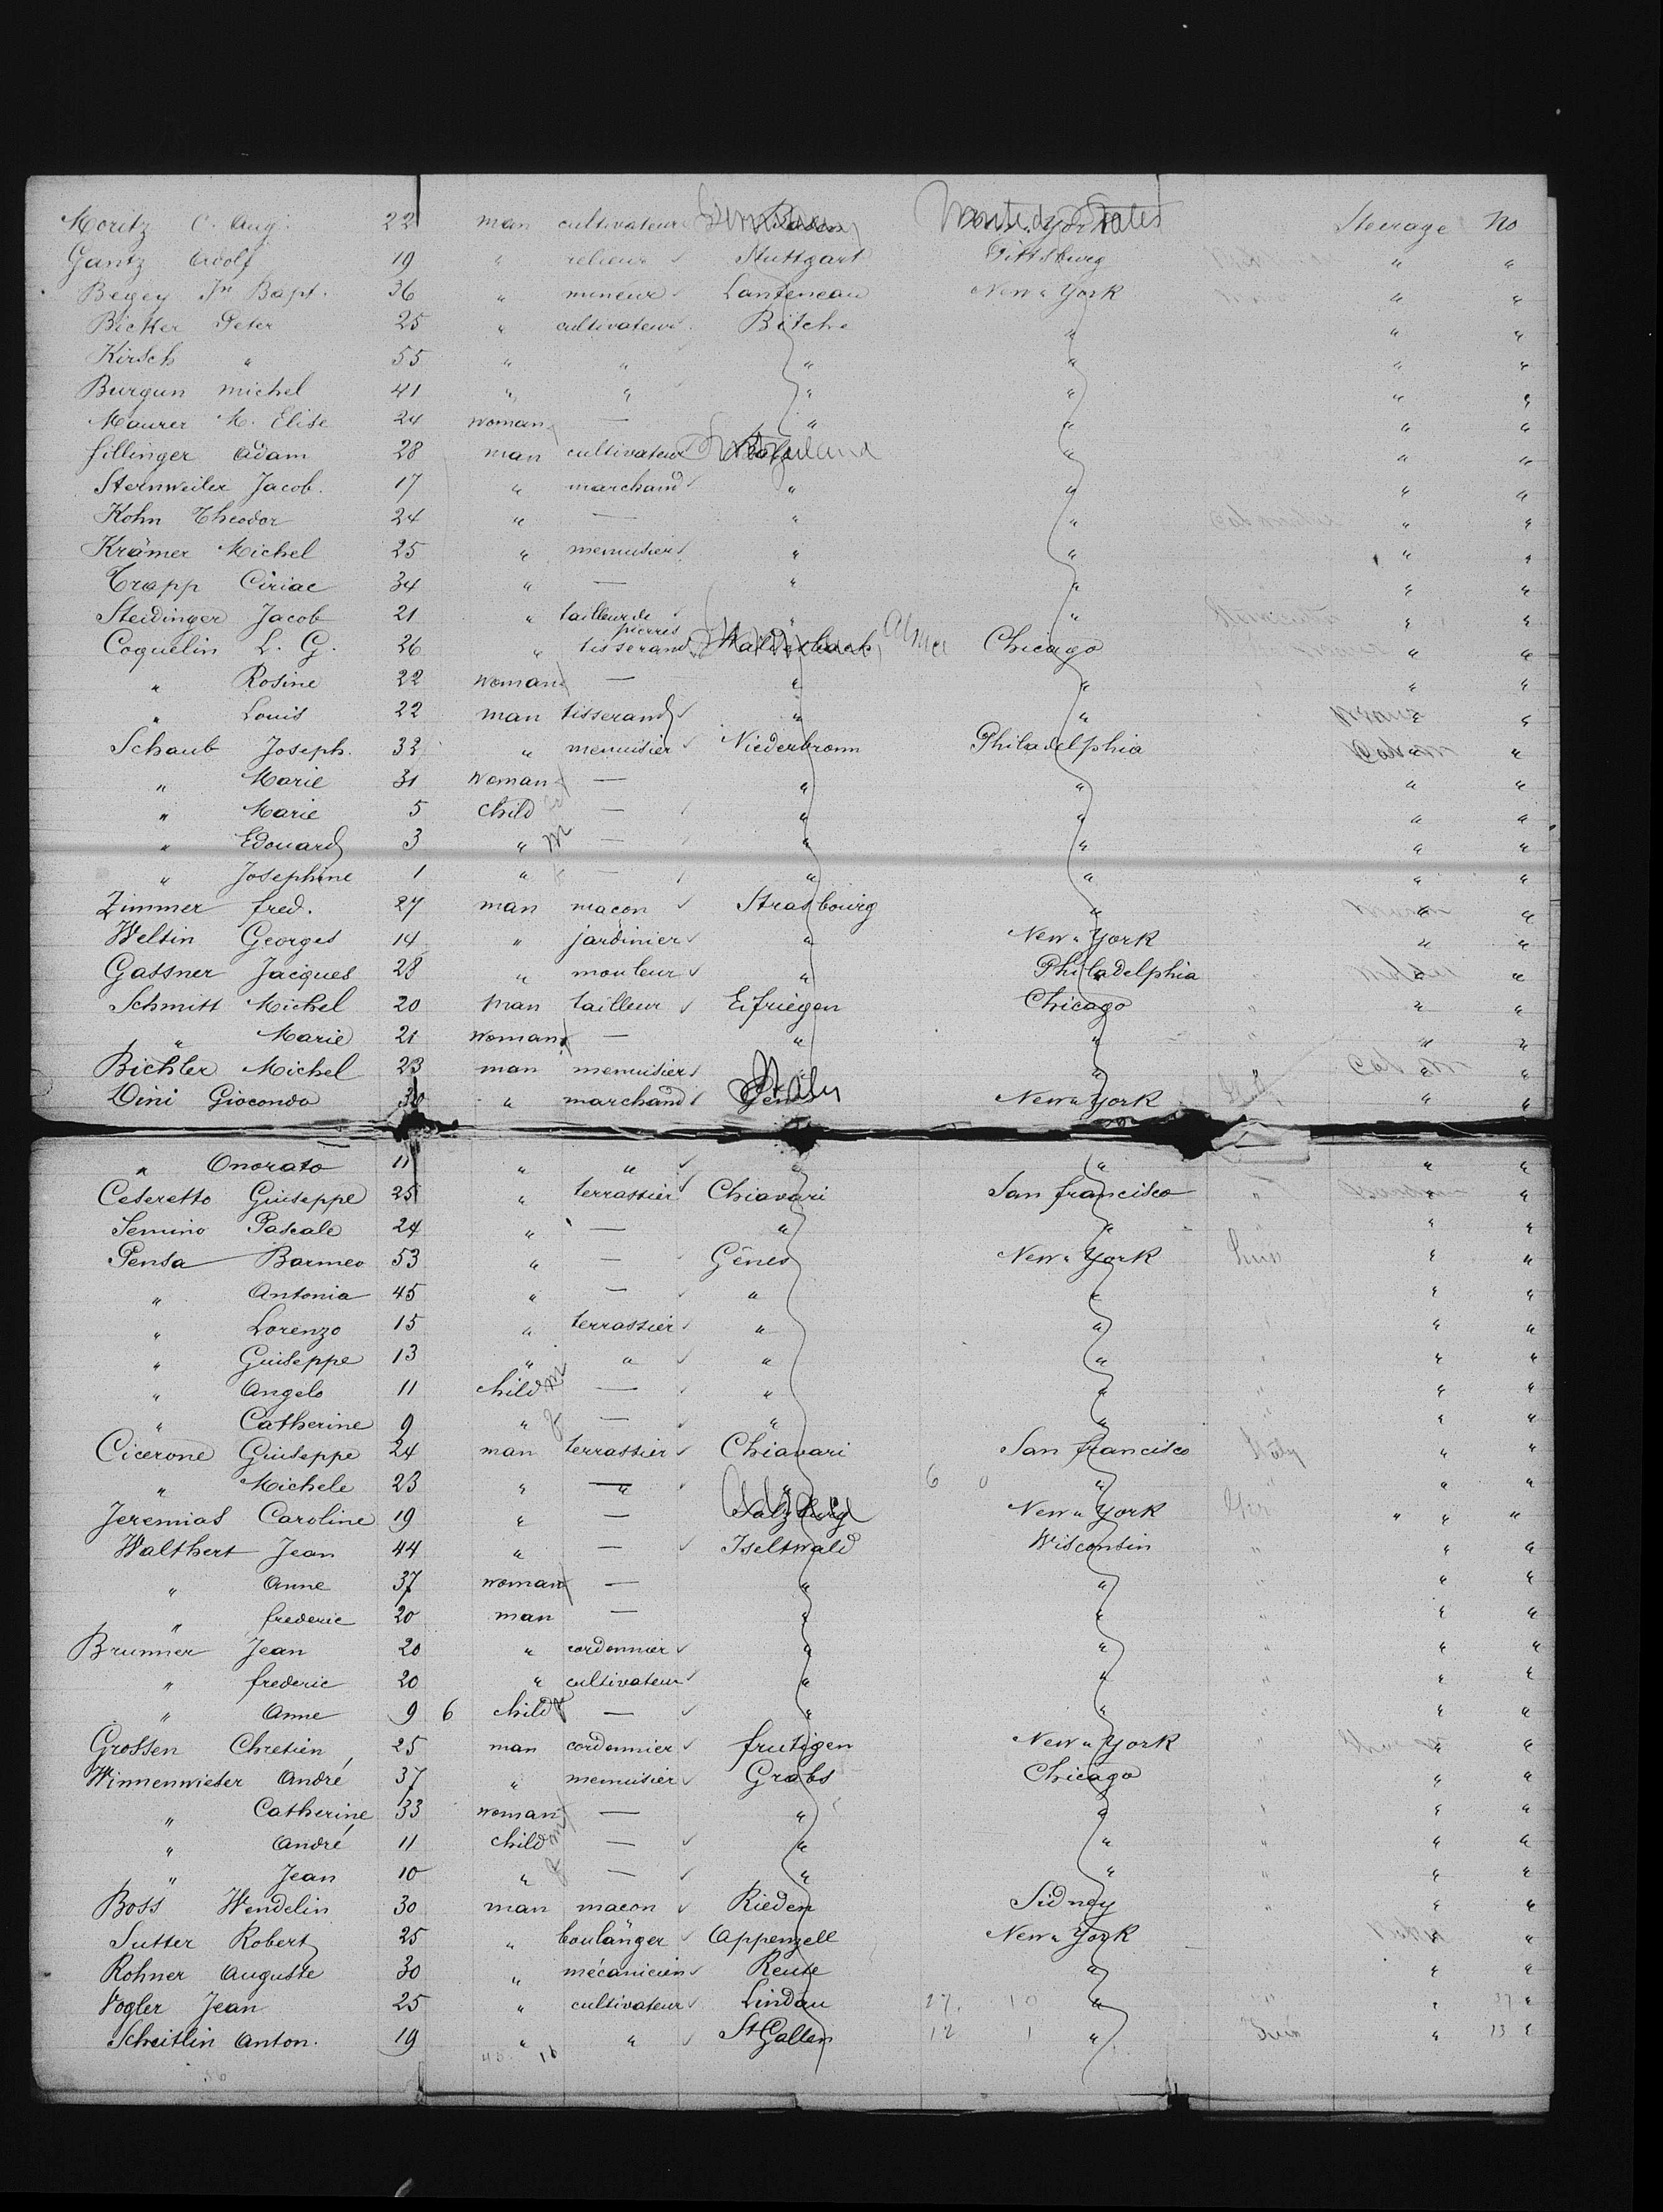 Moritz C. Aug. 22 man cultivateur Baden New York United States Steerage No
Gantz Adolf 19 " relieur Stuttgart Pittsburg " "
Begey Jn Bapt. 36 " mineur New York " "
Peter 25 " cultivateur Bitche " " "
Kirsch " 55 " " " " " "
Burgun Michel 41 " " " " " "
Maurer M. Elise 24 woman — " " " "
fillinger Adam 28 man cultivateur " " "
Sternweiler Jacob. 17 " marchand " " " "
Kohn Theodor 24 " — " " " "
Krämer Michel 25 " menuisier " " " "
Trapp Ciriac 34 " — " " " "
Steidinger Jacob 21 " tailleur de pierres " " " "
Coquelin L. G. 26 " tisserand Chicago " "
" Rosine 22 woman — " " " "
" Louis 22 man tisserand " " " "
Schaub Joseph. 32 " menuisier Niederbronn Philadelphia " "
" Marie 31 woman — " " " "
" Marie 5 child — " " " "
" Edouard 3 " M — " " " "
" Josephine 1 " — " " " "
Zimmer fred. 27 man macon Strasbourg " " "
Weltin Georges 14 " jardinier " New York " "
Gassner Jacques 28 " mouleur " Philadelphia " "
Schmitt Michel 20 man tailleur Eifriegen Chicago " "
" Marie 21 woman — " " " "
Bichler Michel 23 man menuisier " " " "
Dini Gioconda 30 " marchand Gênes Italy New York " "
" Onorato 11 " " " " " "
Ceseretto Giuseppe 25 " terrassier Chiavari San francisco " "
Semino Pascale 24 " — " " " "
Pensa Barmeo 53 " — Gênes New York " "
" Antonia 45 " — " " " "
" Lorenzo 15 " terrassier " " " "
" Guiseppe 13 " " " " " "
" Angelo 11 child M — " " " "
" Catherine 9 " — " " " "
Cicerone Giuseppe 24 man terrassier Chiavari San francisco Italy " "
" Michele 23 " " " 6 0 " " "
Jeremias Caroline 19 " — Salzburg New York " " "
Walthert Jean 44 " — Iseltwald Wisconsin " "
" Anne 37 woman — " " " "
" frederic 20 man — " " " "
Brunner Jean 20 " cordonnier " " " "
" frederic 20 " cultivateur " " " "
" Anne 9 6 child — " " " "
Grossen Chretien 25 man cordonnier frutigen New York " "
Winnenwieser André 37 " menuisier Grabs Chicago " "
" Catherine 33 woman — " " " "
" André 11 child — " " " "
" Jean 10 " — " " " "
Boss Wendelin 30 man macon Rieden Sidney " "
Sutter Robert 25 " boulanger Appenzell New York " "
Rohner Auguste 30 " mécanicien Reute " " "
Vogler Jean 25 " cultivateur Lindau 27. 10 " " 37 "
Scheitlin Anton. 19 " " St Gallen 12 1 " " 13 "